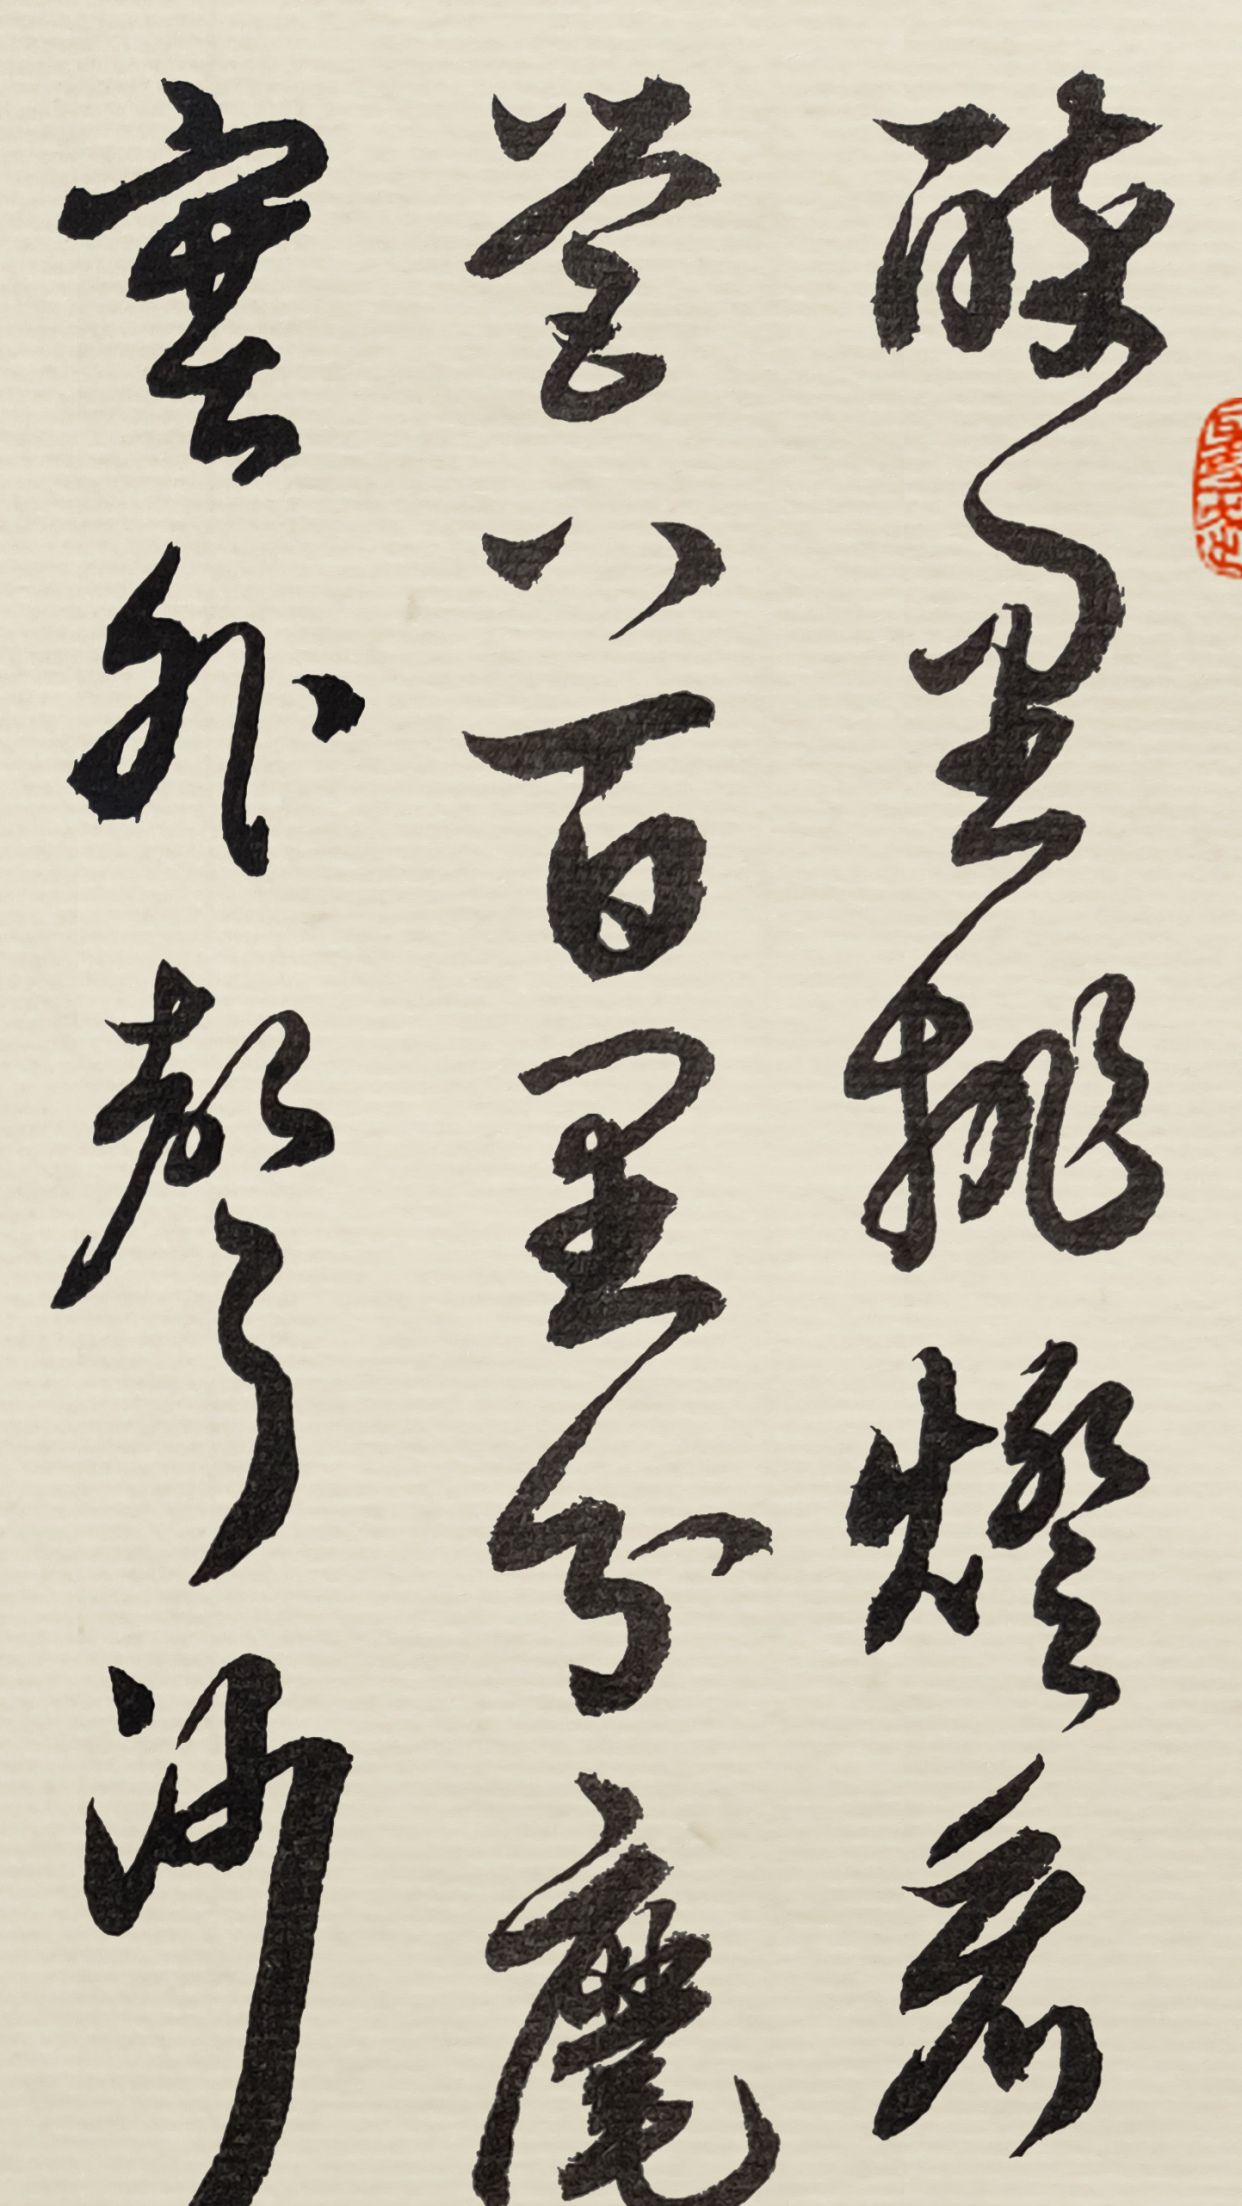 醉里挑燈看
營八百里分麾
塞外聲沙